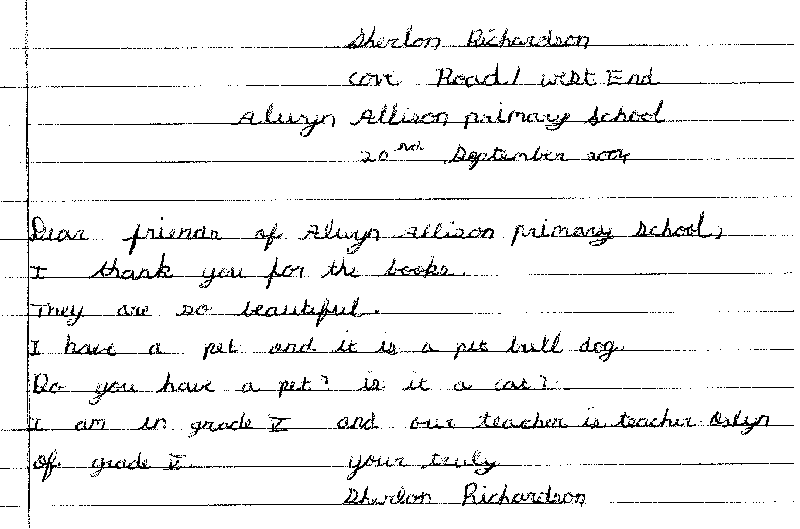 Sherlon Richardson
Cove Road / West End
Alwyn Allison primary School
20nd September 2004
Dear friends of Alwyn Allison primary School,
I thank you for the books.
They are so beautiful.
I have a pet and it is a pit bull dog.
Do you have a pet? is it a cat?
I am in grade V and our teacher is teacher Oslyn
of grade V. your truly
Sherlon Richardson